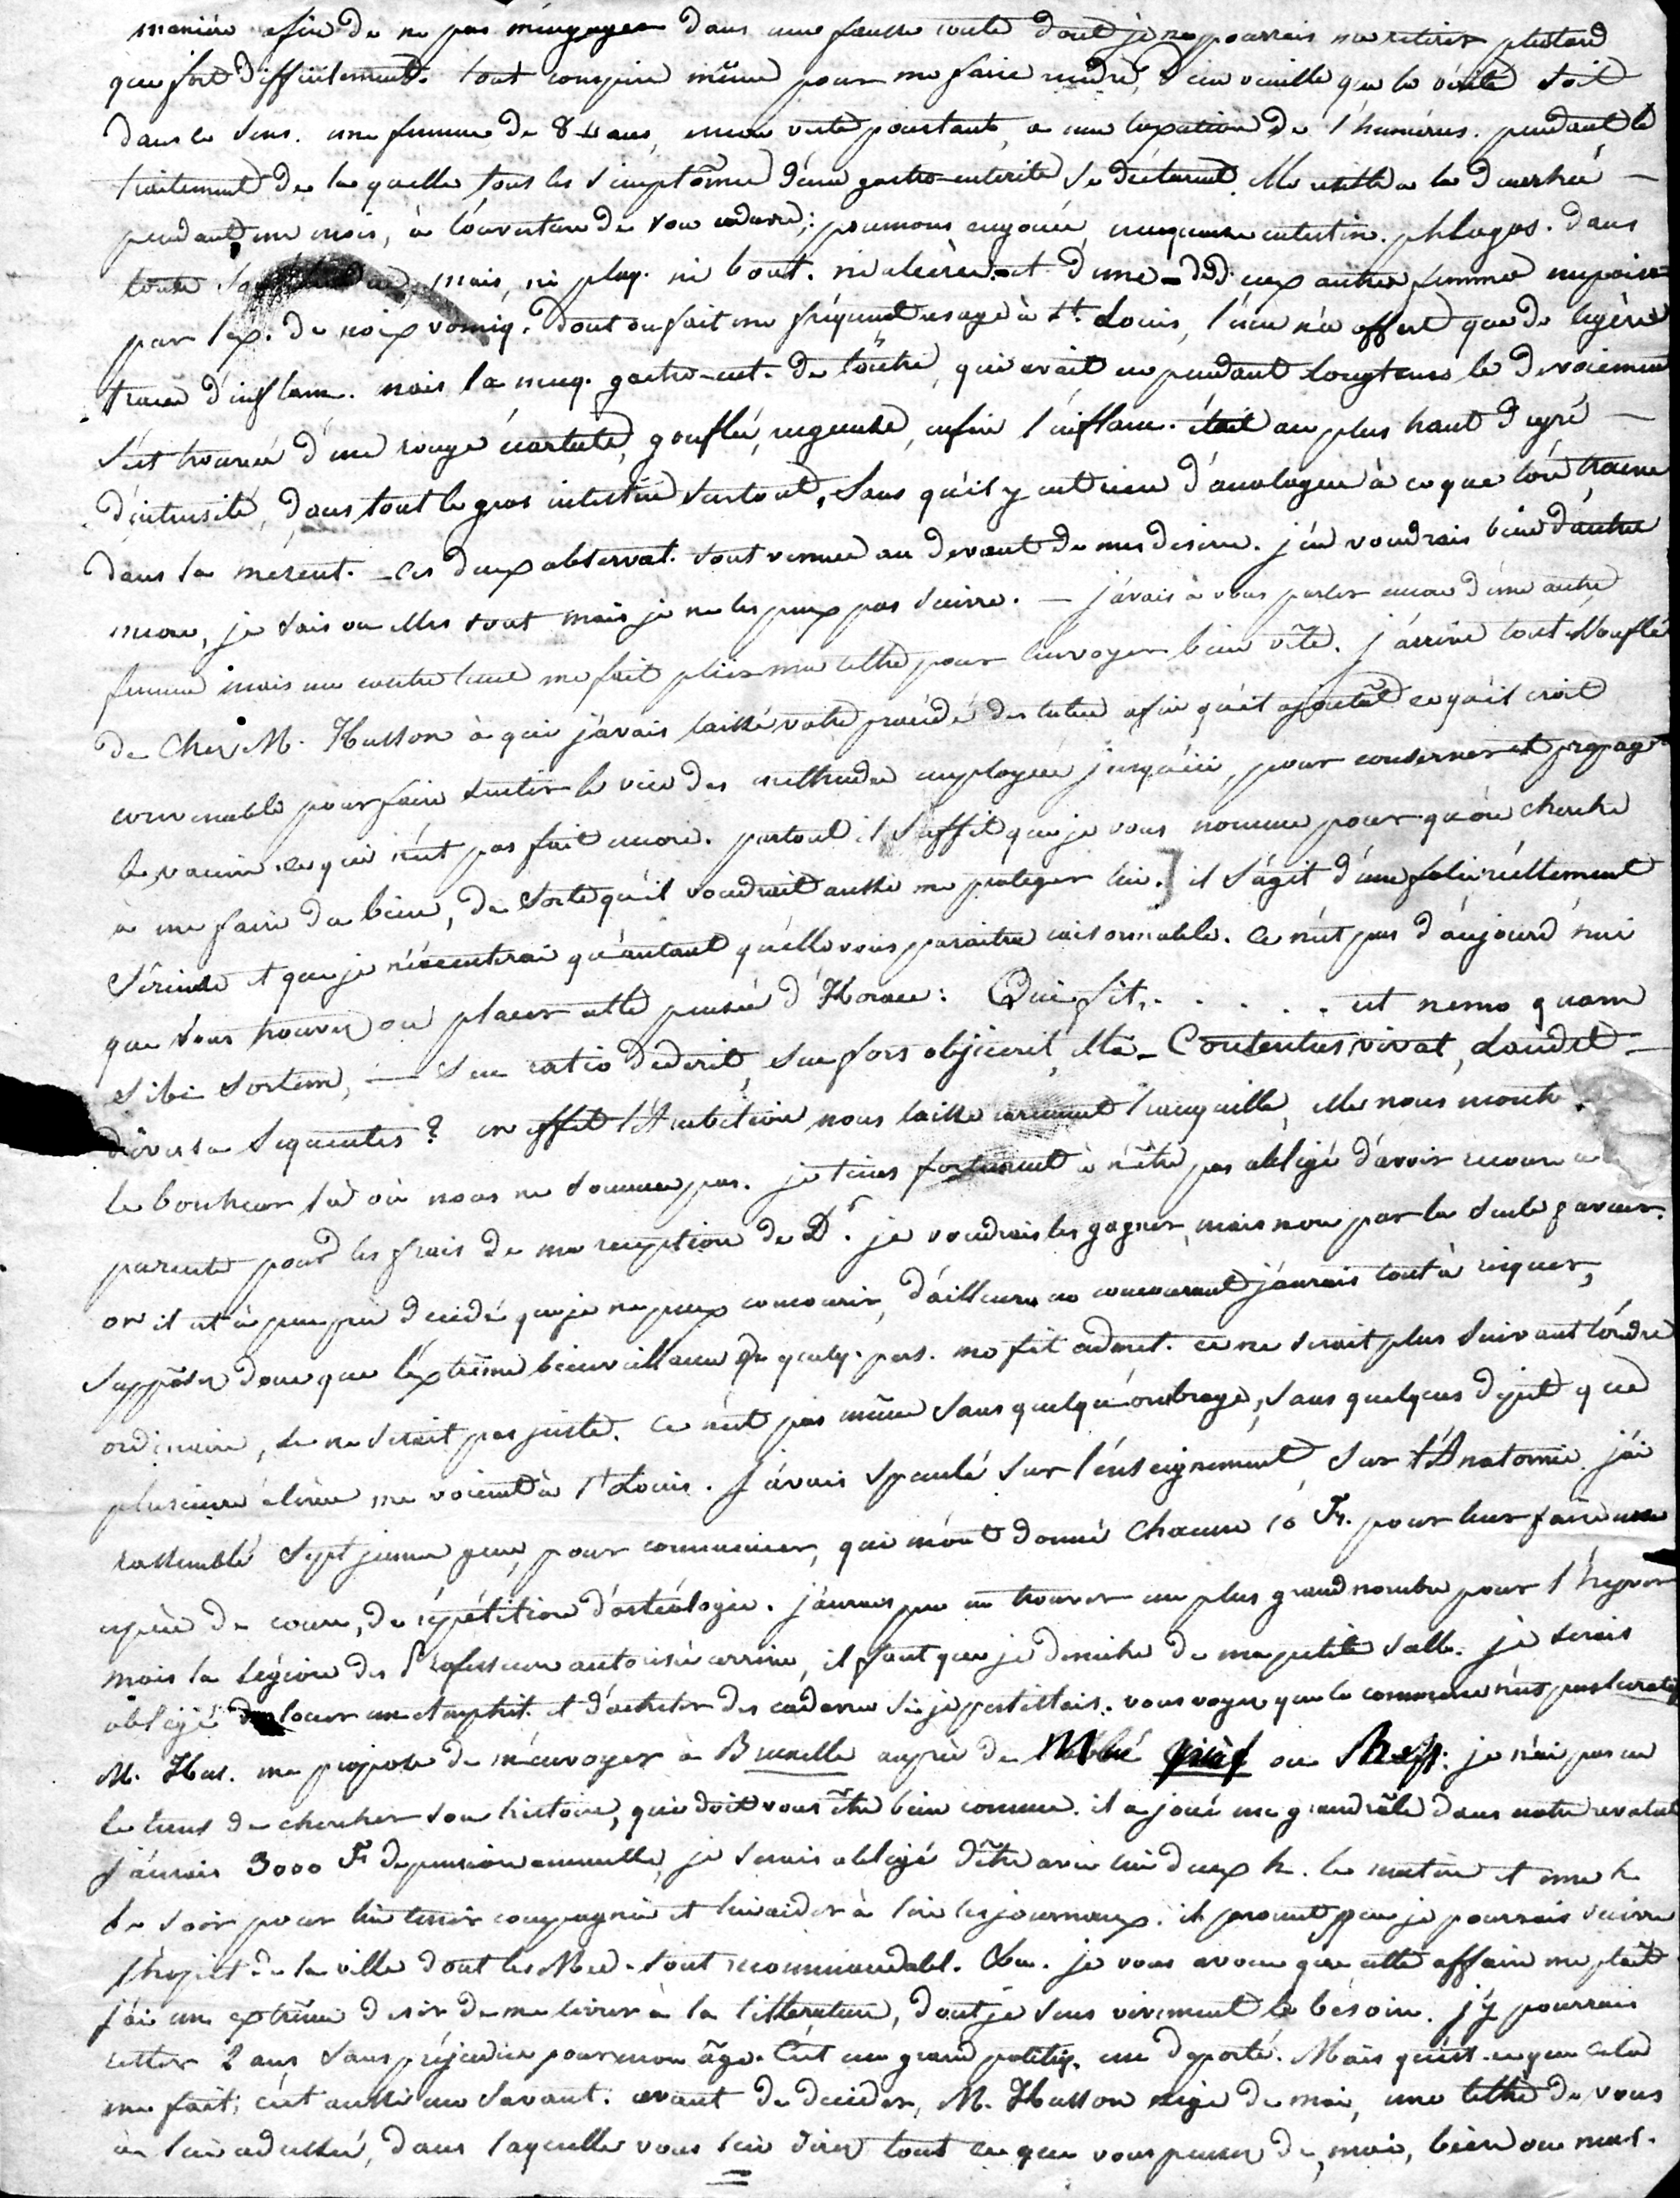 manière afin de ne pas m'engager dans une fausse route dont je ne pourrais me retirer plustard
que fort difficilement. tout conspire même pour me faire rendre, Dieu veuille que la vérité soit
dans ce sens. une femme de 84 ans, encore verte pourtant, a une luxation de l'humérus. pendant le
traitement de laquelle tous les simptômes d'une gastro-enterite se déclarent. elle resiste a la diarrhée —
pendant un mois, à l'ouverture de son cadavre: poumons engoués, muqueuse intestin. phlogos. dans
toute mais, ni plaq. ni bout. ni ulcères. et d'une - de deux autres femmes empoisson
par l'ex. de noix vomiq. dont on fait un fréquent usage à St. Louis, l'une n'a offert que de légères
traces d'inflam. mais la muq. gastro-ent. de l'autre, qui avait eu pendant longtems le devoiement
s'est trouvée d'une rouge écarlate, gonflée, rugueuse, enfin l'inflam. était au plus haut degré —
d'intensité, dans tout le gros intestin surtout, sans qu'il y eut rien d'analogue à ce que l'on trouve
dans la mésent. — ces deux observat. sont venues au devant de mes desirs. j'en voudrais bien d'autres
encore, je sais ou elles sont mais je ne les peux pas suivre. — j'avais à vous parler encore d'une autre
femme mais un contre tems me fait plier ma lettre pour l'envoyer bien vîte. j'arrive tout essouflé
de Chez M. Husson à qui j'avais laissé votre procédé des tubes afin qu'il ajoutât ce qu'il croit
convenable pour faire sentir le vice des méthodes employées jusqu'ici, pour conserver et propag
le vaccin ce qui n'est pas fait encore. partout il suffit que je vous nomme pour qu'on cherche
à me faire du bien, de sorte qu'il voudrait aussi me proteger lui.] il s'agit d'une folie réellement
sérieuse et que je n'éxécuterai qu'autant qu'elle vous paraitra raisonnable. ce n'est pas d'aujourd'hui
que vous trouvez ou placer cette pensée d'Horace: Qui fit, . . . . . ut nemo quam
sibi sortem, — seu ratio dederit, seu fors objicerit, illâ - Contentus vivat, laudet —
diversa sequentes? en effet l'Ambition nous laisse rarement tranquille, elle nous montre
le bonheur là où nous ne sommes pas. je tiens fortement à n'être pas obligé d'avoir recours à
parents pour les frais de ma reception de Dr. je voudrais les gagner, mais non par la seule faveur.
or il est à peu près décidé que je ne peux concourir, d'ailleurs en concourant j'aurais tout à risquer,
supposez donc que l'extrême bienveillance de quelq. pers. me fit admet. ce ne serait plus suivant l'ordre
ordinaire, ce ne serait pas juste. ce n'est pas même sans quelqu'ombrage, sans quelques dépit que
plusieurs élèves me voient à St Louis. j'avais spéculé sur l'enseignement, sur l'Anatomie. j'ai
rassemblé sept jeunes gens, pour commencer, qui m'ont donné chacun 10 Fr. pour leur faire une
espèce de cours, de répétition d'ostéologie. j'aurais pu en trouver un plus grand nombre pour l'hyver
mais la légion des Professeurs autorisée arrive, il faut que je déniche de ma petite salle. je serais
obligé de louer un Amphit. et d'acheter des cadavres si je persistais. vous voyez que le commerce n'est pas lucratif
M. Hus. me propose de m'envoyer à Bruxelle auprès de ou je n'ai pas eu
le tems de chercher son histoire, qui doit vous être bien connue. il a joué un grand rôle dans notre revolut
j'aurais 3000 F de pension annuelle, je serais obligé d'être avec lui deux h. le matin et une h.
le soir pour lui tenir compagnie et lui aider à lire les journaux. il promet que je pourrais suivre
l'hopit. de la ville dont les Med. sont recommandabl. je vous avoue que cette affaire me plaît
j'ai un extrême desir de me livrer à la littérature, dont je sens vivement le besoin. j'y pourrais
rester 2 ans sans préjudice pour mon âge. C'est un grand politiq. un deporté. Mais qu'est-ce que cela
me fait; c'est aussi un savant. avant de decider, M. Husson exige de moi, une lettre de vous
à lui adressée, dans laquelle vous lui direz tout ce que vous pensez de moi, bien ou mal.